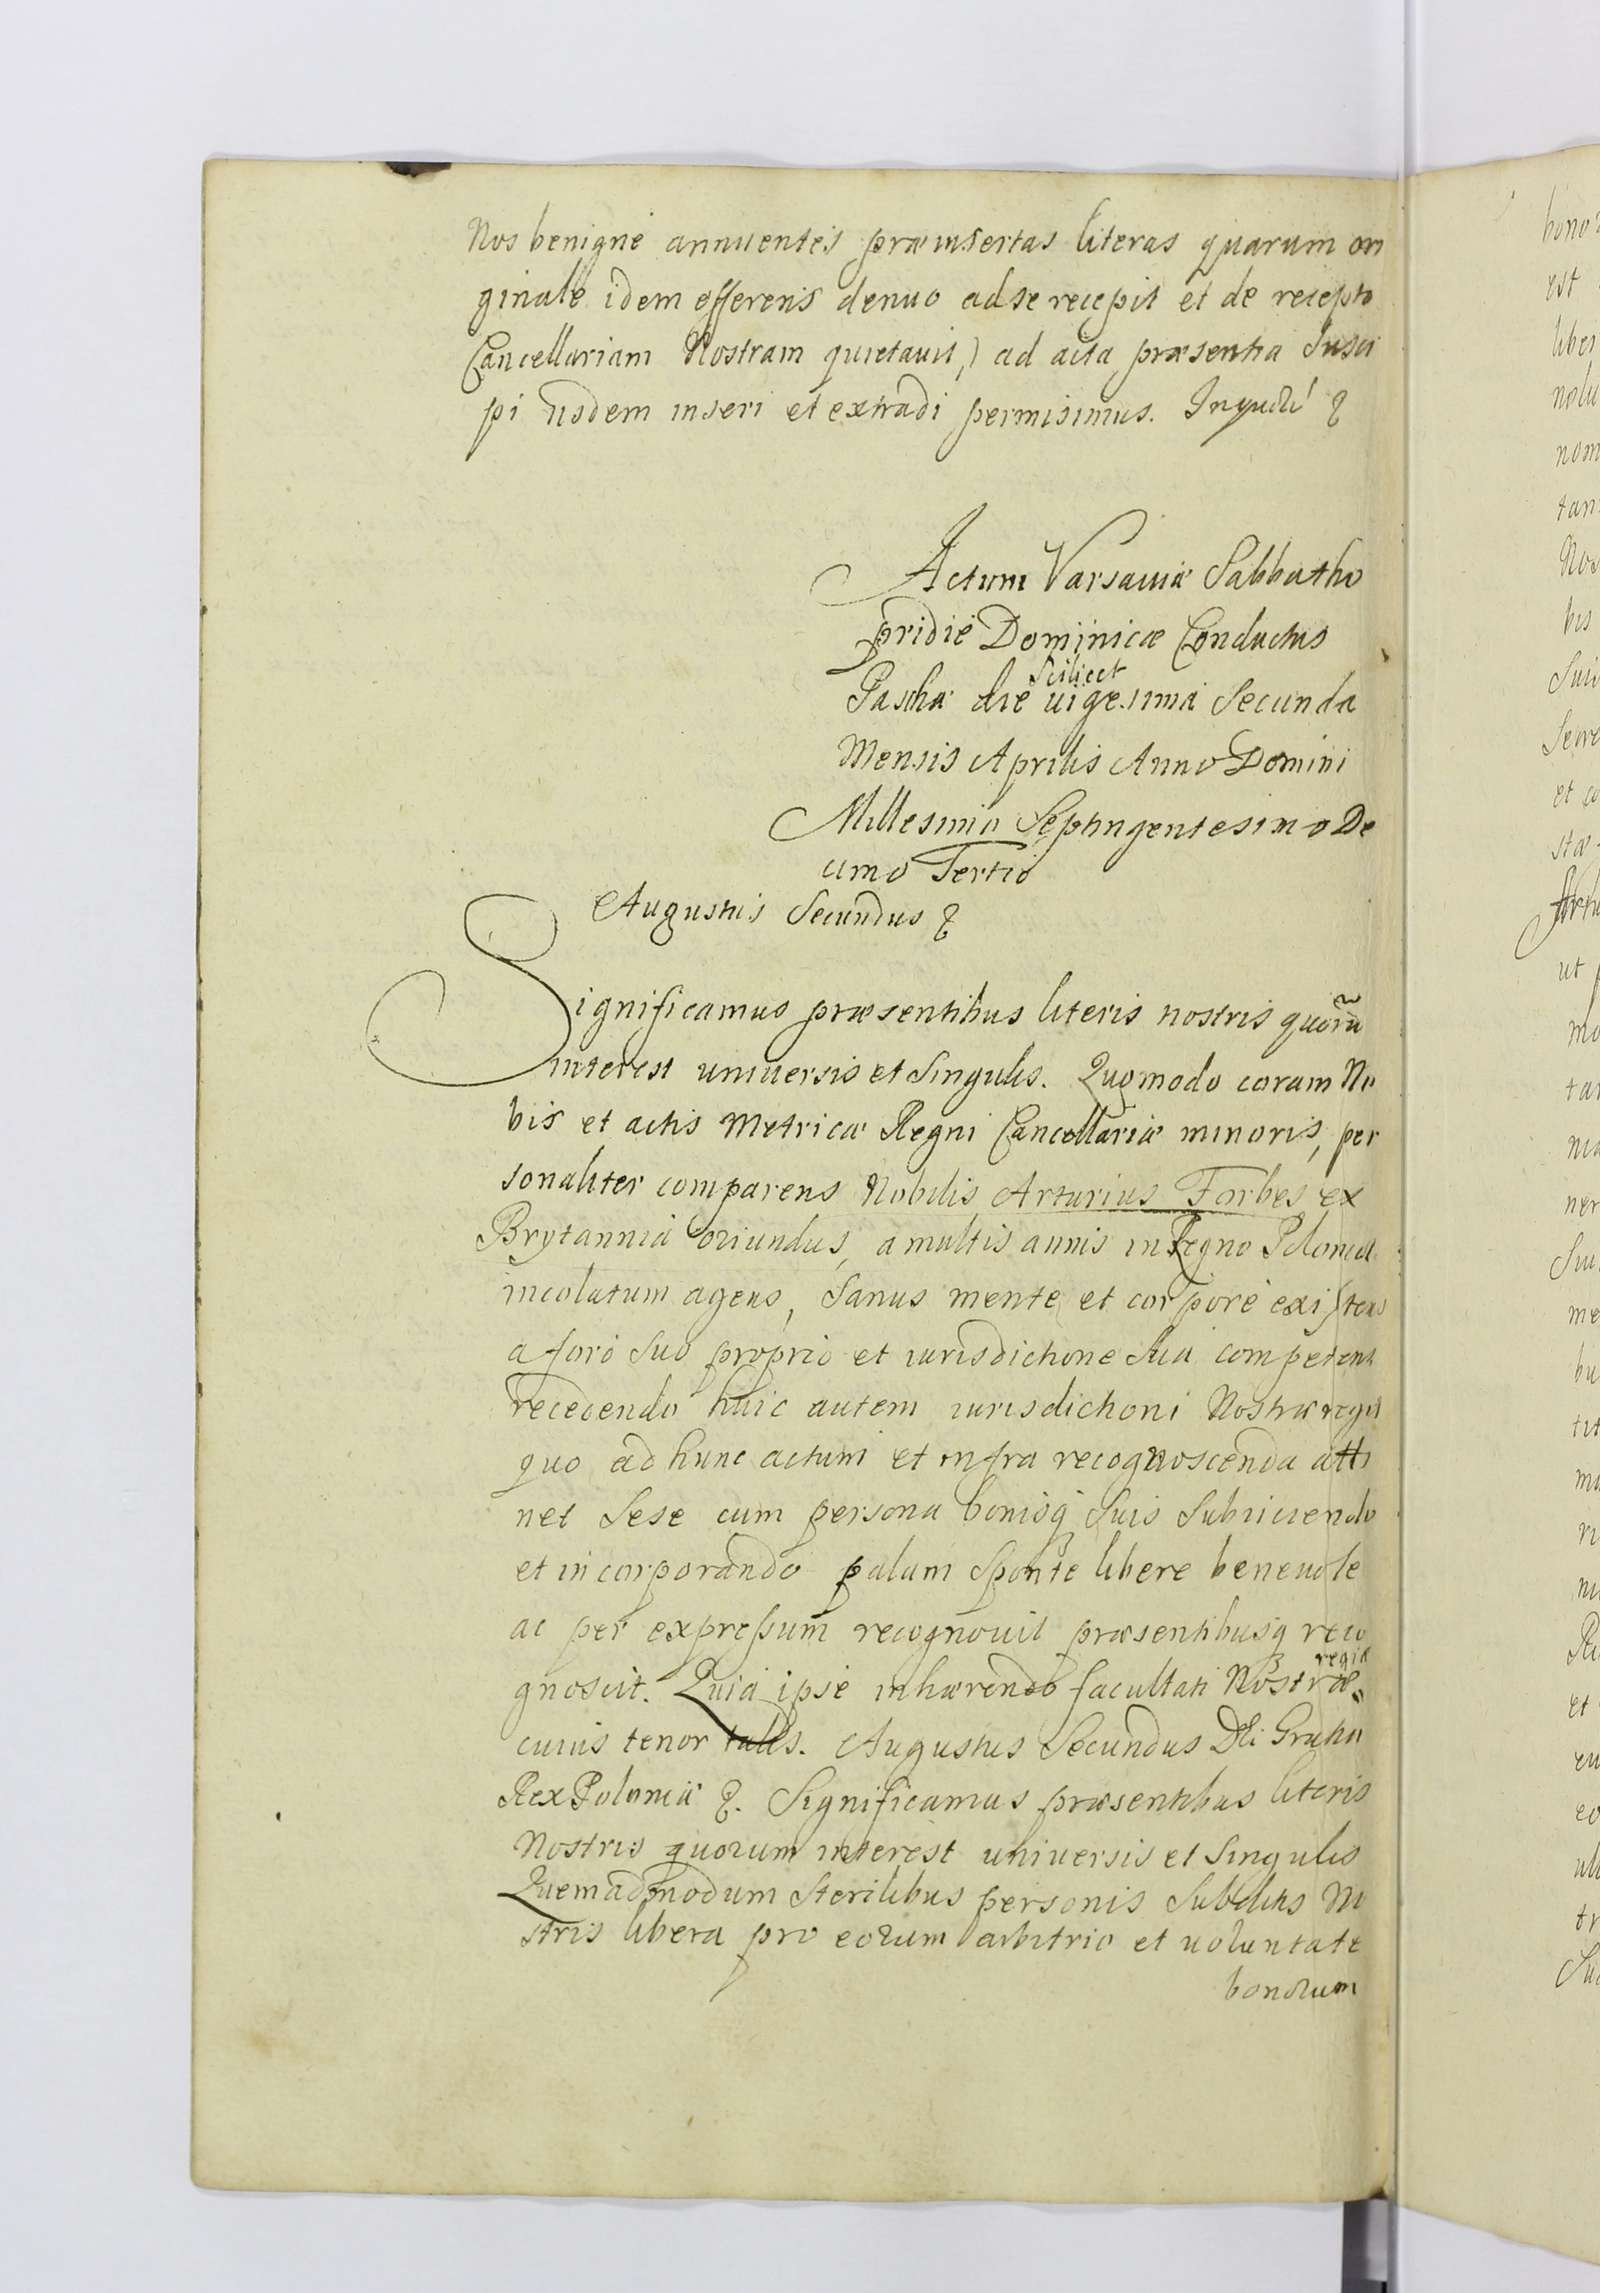 Nos benigne annuentes præinsertas literas quarum ori
ginale idem offerens denuo ad se recepit et de recepto
Cancellariam Nostram quietavit,) ad acta præsentia Susci
pi iisdem inseri et extradi permisimus. In quorū
Actum Varsaviæ Sabbatho
pridie Dominicæ Conductus
Paschæ die Scilicet vigesima Secunda
Mensis Aprilis Anno Domini
Millesimo Septingentesimo De
cimo Tertio
Augustus Secundus
Significamus præsentibus literis nostris quorū
interest universis et Singulis. Quomodo coram No
bis et actis Metricæ Regni Cancellariæ minoris, per
sonaliter comparens Nobilis Arturius Forbes ex
Brytannia oriundus, a multis annis in Regno Poloniæ
incolatum agens, Sanus mente et corpore existens
a foro Suo proprio et iurisdictione Sua competenti
recedendo huic autem iurisdictioni Nostræ regiæ
quo ad hunc actum et infra recognoscenda atti
net Sese cum persona bonisq Suis Subiiciendo
et incorporando palam Sponte libere benevole
ac per expressum recognovit præsentibusq reco
gnoscit. Quia ipse inhærendo facultati Nostræ regiæ
cuius tenor talis. Augustus Secundus Dei Gratia
Rex Poloniæ. Significamus præsentibus literis
Nostris quorum interest universis et Singulis
Quemadmodum Sterilibus personis Subditis No
stris libera pro eorum arbitrio et voluntate
bonorum